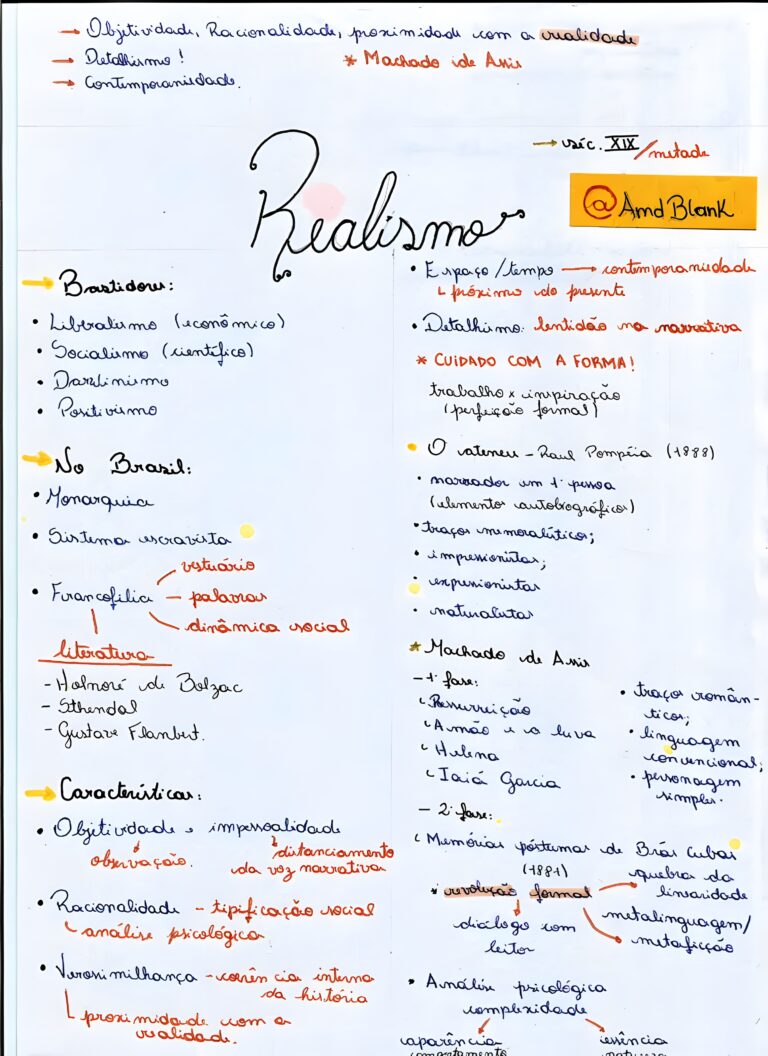 → Objetividade, Racionalidade, proximidade com a realidade
→ Detalhismo!
* Machado de Assis
→ Contemporaneidade.
→ séc. XIX/metade
Realismo
@AmdBlank
→ Bastidores:
• Liberalismo (econômico)
• Socialismo (científico)
• Darwinismo
• Positivismo
→ No Brasil:
• Monarquia
• Sistema escravista
• Francofilia
vestuário
palavras
dinâmica social
literatura
- Holnoré de Bolzac
- Sthendal
- Gustave Flanbert.
→ Características:
• Objetividade e impessoalidade
observação.
distanciamento
da voz narrativa
• Racionalidade - tipificação social
análise psicológica
• Verossimilhança - coerência interna
da história
proximidade com a
realidade.
• Espaço/tempo → contemporaneidade
próximo do presente
• Detalhismo: lentidão na narrativa
* CUIDADO COM A FORMA!
trabalho x inspiração
(perfeição formal)
• O ateneu - Raul Pompéia (1888)
• narrador em 1ª pessoa
(elemento autobiográfico)
• traços memoralísticos;
• impressionistas;
• expressionistas
• naturalistas
* Machado de Assis
- 1ª fase:
Ressurreição
A mão e a luva
Helena
Iaiá Garcia
• traços român-
ticos;
• linguagem
convencional;
• personagem
simples.
- 2ª fase:
Memórias póstumas de Brás Cubas
(1881)
* revolução formal
quebra da
linearidade
diálogo com
leitor
metalinguagem/
metaficção
• Análise psicológica
complexidade
aparência
comportamento
essência
natureza